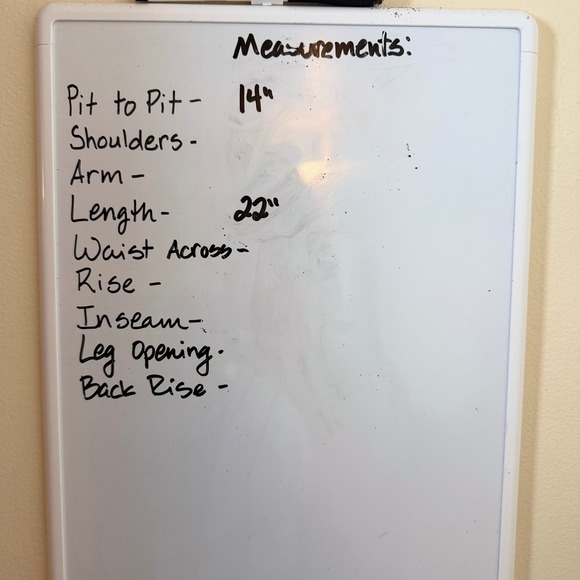 Measurements:
Pit to Pit - 14"
Shoulders -
Arm -
Length - 22"
Waist Across -
Rise -
Inseam -
Leg Opening -
Back Rise -